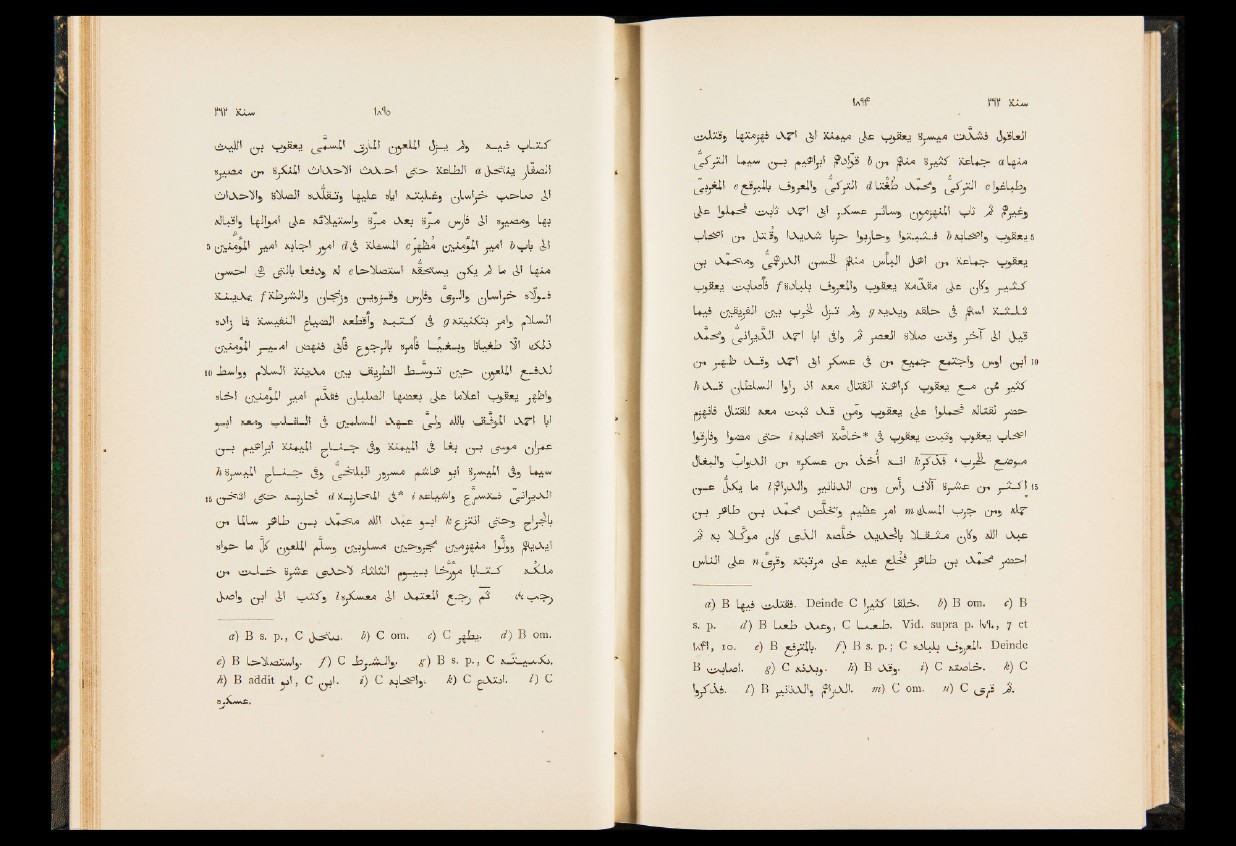 سنة ٢٦٢ ١٨٩۴
العاقول فشدّت ميسرة يعقوب على ميمنة ابى احمد فهزمتها وقتلت
منها a جماعة كثيرة منهم من b قوّادهم ابراهيم بن سيما التركىّ
وطباغوا c التركىّ ومحمّد طُغْتا d التركىّ والمعروف بالمبرقع e المغربىّ
وغيرهم ثم ثاب المنهزمون وسائر عسكر ابى احمد ثابت فحملوا على
5 يعقوب واصحابه b فثبتوا وحاربوا حربا شديدا وقُتل من اصحاب
يعقوب جماعة من اهل البأس منهم الحسن الدرهمىّ ومحمّد بن
كثير وكان على مقدّمة يعقوب والمعروف بلباده f فأصابت يعقوب
ثلثة اسهم فى حلقه ويديه g ولم تزل الحرب بين الفريقين فيما
قيل الى آخر وقت صلاة العصر ثم وافى ابا احمد الدَّيرانىّ ومحمّد
10 ابن اوس واجتمع جميع من فى عسكر ابى احمد وقد ظهر من
كثير ممن مع يعقوب كراهة القتال معه اذ راوا السلطان قد h
حضر لقتاله فحملوا على يعقوب ومن قد ثبت معه للقتال فانهزم
اصحاب يعقوب وثبت يعقوب فى *خاصّة اصحابه i حتى مضوا وفارقوا
موضع الحرب، فذُكر k انه أُخذ من عسكره من الدوابّ والبغال
15 اكثر من عشرة آلاف رأس ومن الدنانير والدراهم l ما يكلّ عن
حمله ومن جرب المسك m امر عظيم وتخلّص محمّد بن طاهر بن
عبد الله وكان مثقلا بالحديد خلّصه الذى كان موكّلا به ثم
احضر محمّد بن طاهر فخُلع عليه على مرتبته وقرئ n على الناس
a) B فقتلت فيها. Deinde C خلقا كثيرا. b) B om. c) B
s. p. d) B وعمد طعما, C طعمـا. Vid. supra p. ١٨٦١, 7 et
10. e) B بالمترفع. f) B s. p.; C المعروف بلباده. Deinde
B اصابت. g) C وبدنه. h) B وقد. i) C خاصته. k) C
فذكروا. l) B والدنانير الدراهم. m) C om. n) C ثم قرى.
سنة ٢٦٢ ١٨٩٥
كتاب فيه ولم يزل الملعون المارق المسمّى يعقوب بن الليث
الصفّار ينتحل a الطاعة حتى احدث الاحداث المنكرة من مصيره
الى صاحب خراسان وغلبته اياه عليها وتقلّده الصلاة والاحداث
بها ومصيره الى فارس مرّة بعد مرّة واستيلائه على اموالها واقباله
5 الى باب b امير المؤمنين مُظهِر c المسئلة فى d امور اجابه امير المؤمنين
منها الى ما لم يكن يستحقّه استصلاحا e له ودفعا بالتى هى احسن
فولّاه خراسان والرىّ وفارس وقزوين وزنجان والشرطة f بمدينة
السلام وامر بتكنيته g فى كتبه وأقطعه الضياع النفيسة فما زاده
ذلك الّا طغيانا وبغيا فأمره بالرجوع فأبى فنهض امير المؤمنين
10 لدفع الملعون حين توسّط الطريق بين مدينة السلام وواسط
واظهر يعقوب اعلاما على بعضها الصلبان فقدّم امير المؤمنين اخاه
ابا احمد الموفّق بالله ولىّ عهد المسلمين فى القلب ومعه ابو
عمران موسى بن بغا فى الميمنة وفى جناح الميمنة ابراهيم بن
سيما وفى الميسرة ابو هاشم مسرور البلخىّ وفى جناح الميسرة h
15 الديرانىّ فتسرّع واشياعه i فى* المحاربة d فحاربه حتى اثخن
بالجراح وحتى انتزع k ابو عبد الله محمّد بن طاهر سالما من
ايديهم وولّوا منهزمين مجروحين مسلوبين وسلّم الملعون كلّ ما حواه
ملكه كتابا مؤرّخا بيوم الثلثاء لاحدى عشرة خلت من
رجب، ثم رجع المعتمد الى معسكره l وكتب الى ابن واصل
a) B s. p., C b) C om. c) C يظهر. d) B om.
e) B واستصلاحا. f) C والشرط. g) B s. p., C
h) B addit ابو, C ابن. i) C واصحابه. k) C ابتدع. l) C
عسكره